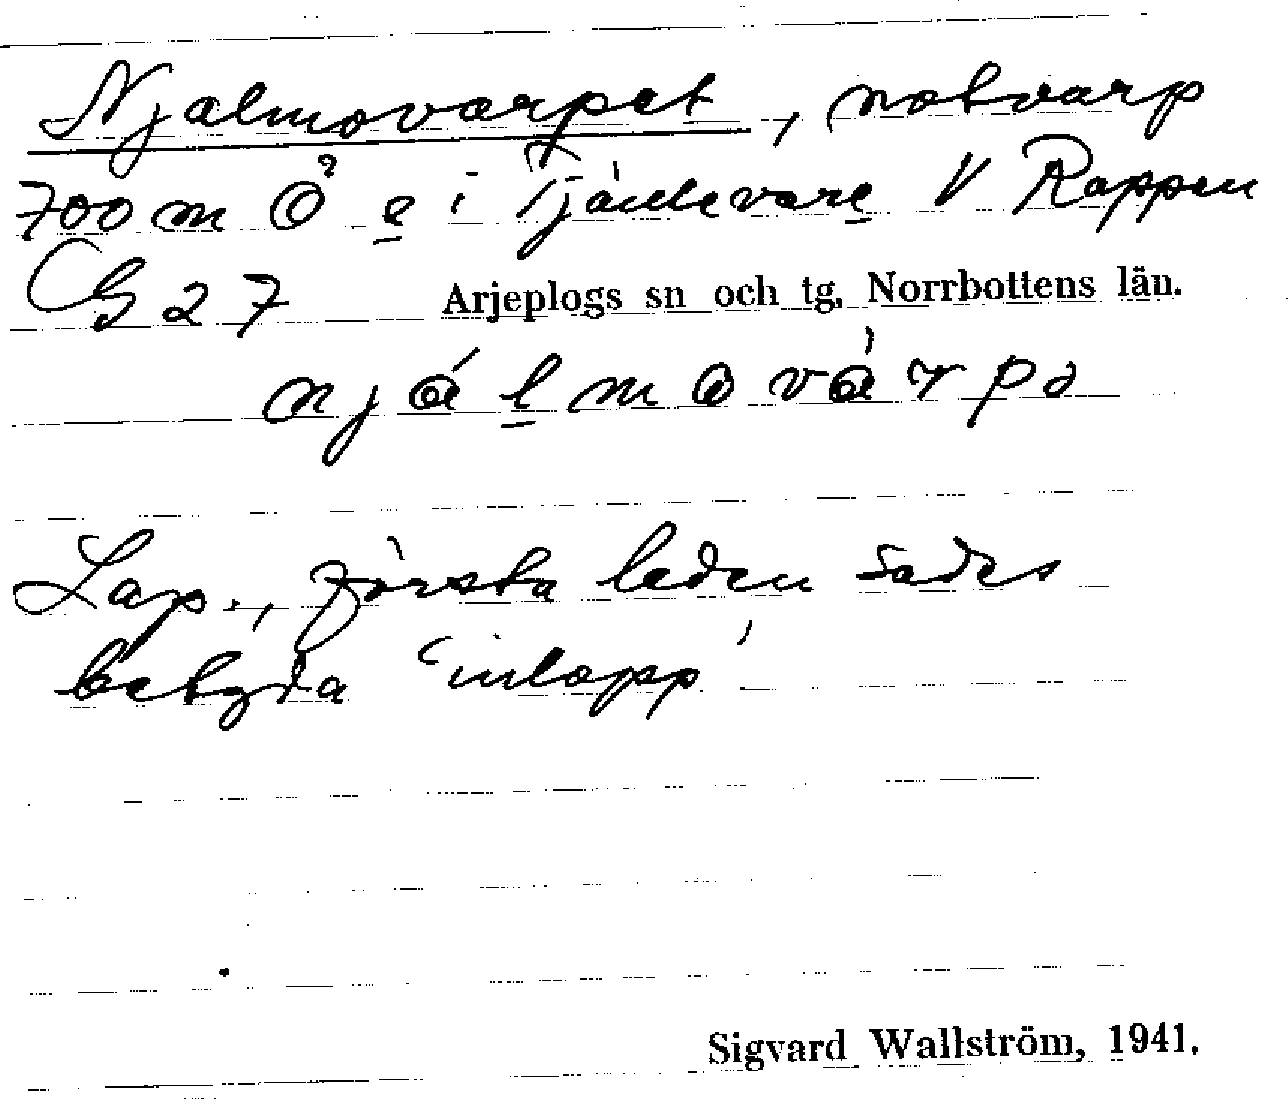 Njalmovarpet, notvarp
700 m Ö e i Tjådevare V Rappen
G 27 Arjeplogs sn och tg, Norrbottens län.
njálmovárpə
Lap., första leden sades
betyda 'inlopp'
Sigvard Wallström, 1941.